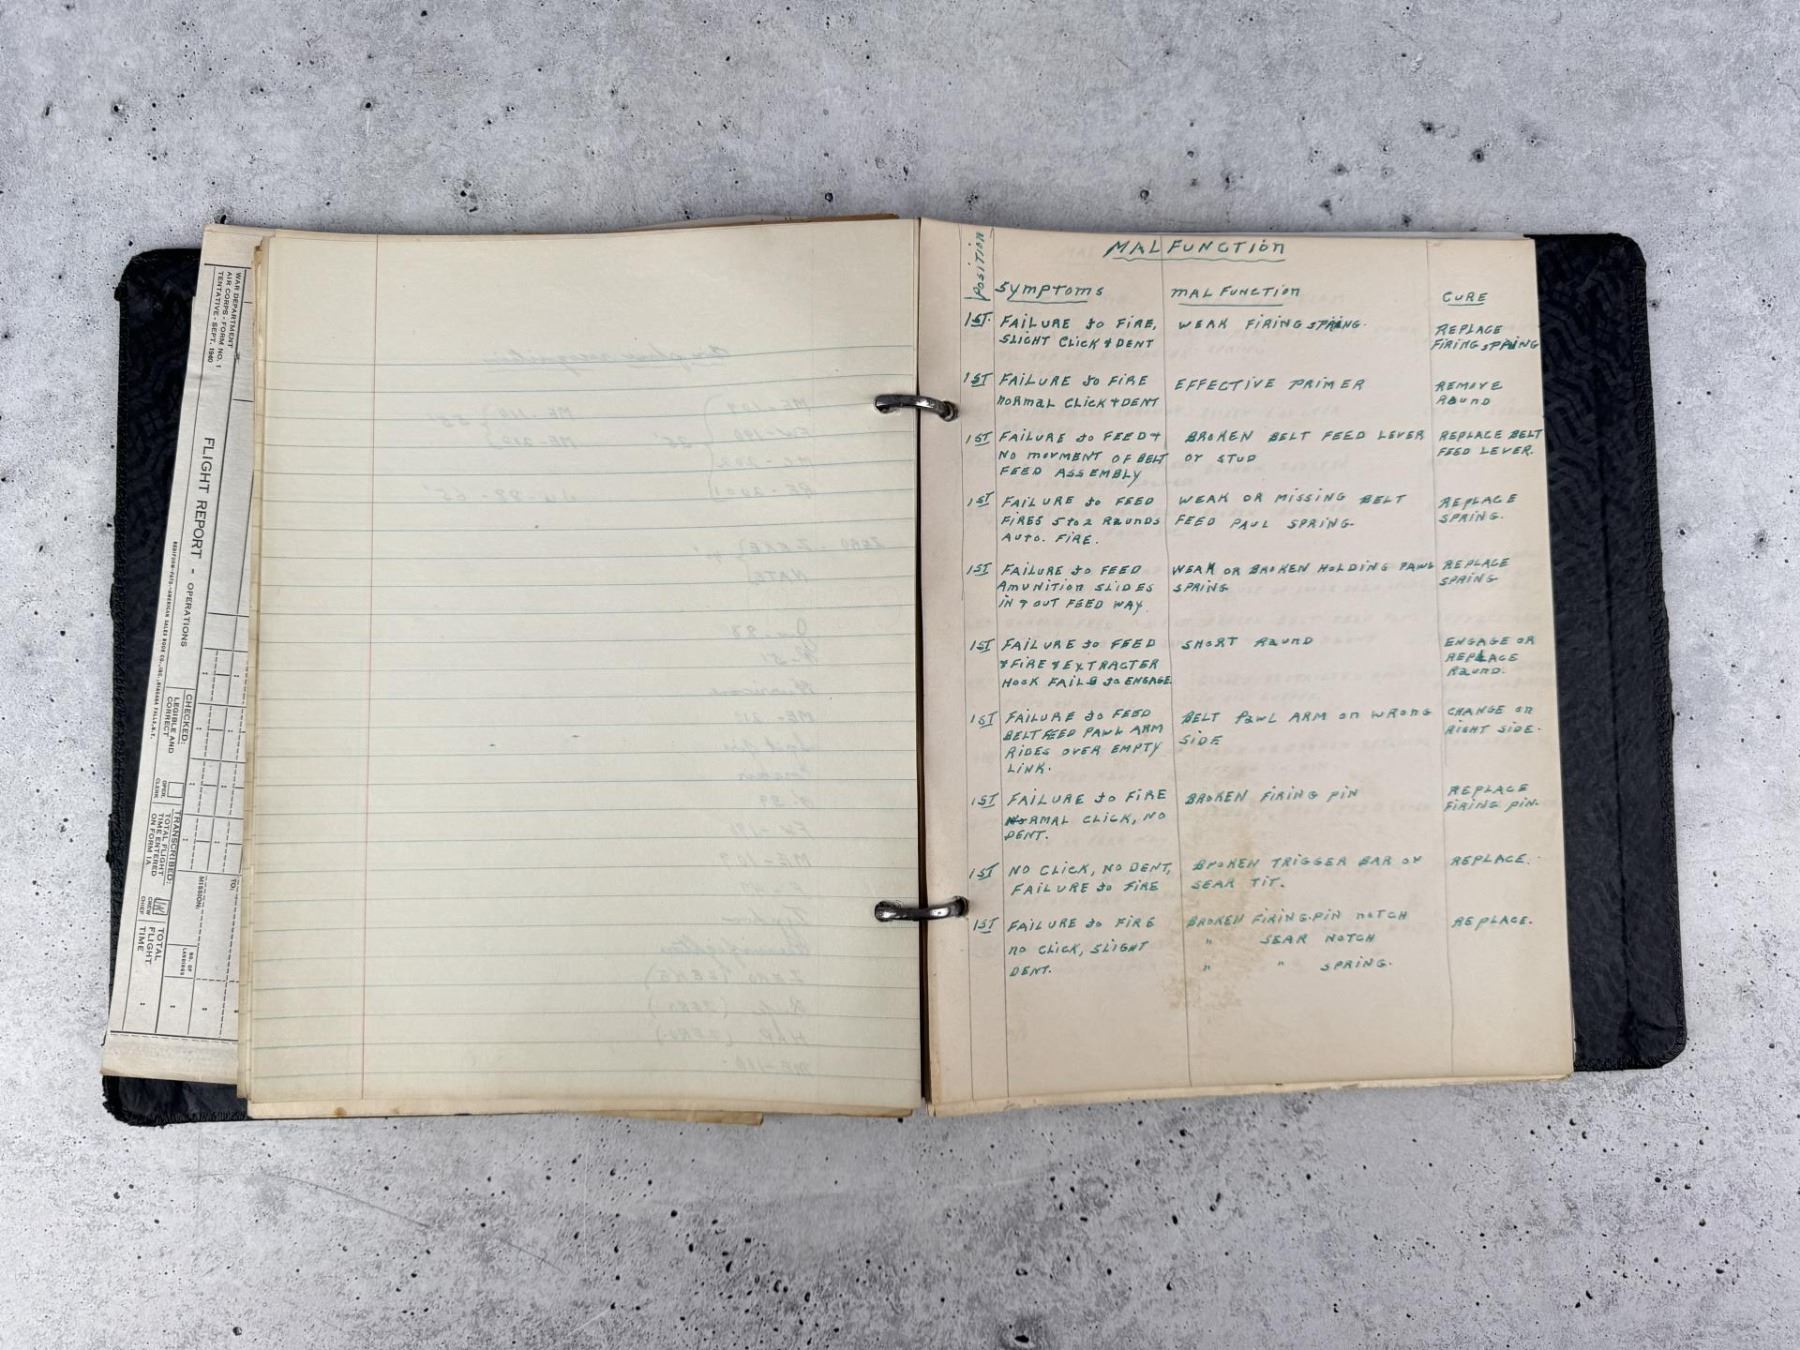 WAR DEPARTMENT
AIR CORPS-FORM NO. 1
TENTATIVE-SEPT. 1940
FLIGHT REPORT - OPERATIONS
CHECKED:
LEGIBLE AND
CORRECT
OPER.
CLERK
TRANSCRIBED:
TOTAL FLIGHT
TIME ENTERED
ON FORM 1A
CREW
CHIEF
TO:
MISSION:
NO. OF
LANDINGS
TOTAL
FLIGHT
TIME
POSITION
MALFUNCTION
SYMPTOMS MALFUNCTION CURE
1ST. FAILURE to FIRE, WEAK FIRING SPRING. REPLACE
SLIGHT CLICK & DENT FIRING SPRING
1ST FAILURE to FIRE EFFECTIVE PRIMER REMOVE
NORMAL CLICK & DENT ROUND
1ST FAILURE to FEED & BROKEN BELT FEED LEVER REPLACE BELT
NO MOVMENT OF BELT OR STUD FEED LEVER.
FEED ASSEMBLY
1ST FAILURE to FEED WEAK OR MISSING BELT REPLACE
FIRES 5 to 2 ROUNDS FEED PAUL SPRING. SPRING.
AUTO. FIRE.
1ST FAILURE to FEED WEAK OR BROKEN HOLDING PAWL REPLACE
AMUNITION SLIDES SPRING SPRING
IN & OUT FEED WAY.
1ST FAILURE to FEED SHORT ROUND ENGAGE OR
& FIRE & EXTRACTER REPLACE
HOOK FAILS to ENGAGE ROUND.
1ST FAILURE to FEED BELT PAWL ARM ON WRONG CHANGE ON
BELT FEED PAWL ARM SIDE RIGHT SIDE.
RIDES OVER EMPTY
LINK.
1ST FAILURE to FIRE BROKEN FIRING PIN REPLACE
NORMAL CLICK, NO FIRING PIN.
DENT.
1ST NO CLICK, NO DENT, BROKEN TRIGGER BAR OR REPLACE.
FAILURE to FIRE SEAR TIT.
1ST FAILURE to FIRE BROKEN FIRING-PIN NOTCH REPLACE.
NO CLICK, SLIGHT " SEAR NOTCH
DENT. " " SPRING.